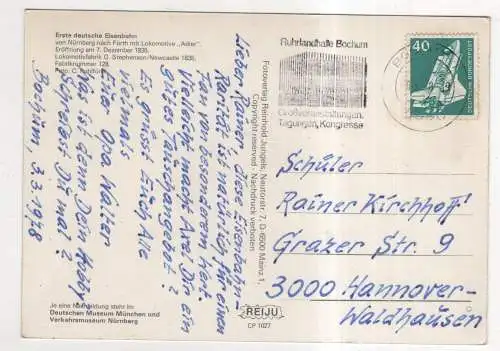 Erste deutsche Eisenbahn
von Nürnberg nach Fürth mit Lokomotive „Adler".
Eröffnung am 7. Dezember 1835.
Lokomotivfabrik G. Stephenson/Newcastle 1835,
Fabriknummer 128.
Foto: C.
Lieber Rainer, diese Eisenbahn-
Rarität ist natürlich für einen
Fan besonderen Wert.
Vielleicht macht Axel Dir ein
gut
Es grüsst Euch Alle
vielmals
Euer Opa Walter
Was ist denn Dein Hobby,
schreibst Du mal?
Bochum, 3.3.1978
Je eine Nachbildung steht im
Deutschen Museum München und
Verkehrsmuseum Nürnberg
Fotoverlag Reinhold Jungels, Neutorstr. 7, D-6500 Mainz 1,
Copyright reserved - Nachdruck verboten
REIJU
CP 1027
Ruhrlandhalle Bochum
Großveranstaltungen,
Tagungen, Kongresse
40
DEUTSCHE BUNDESPOST
Schüler
Rainer Kirchhoff
Grazer Str. 9
3000 Hannover-
Waldhausen